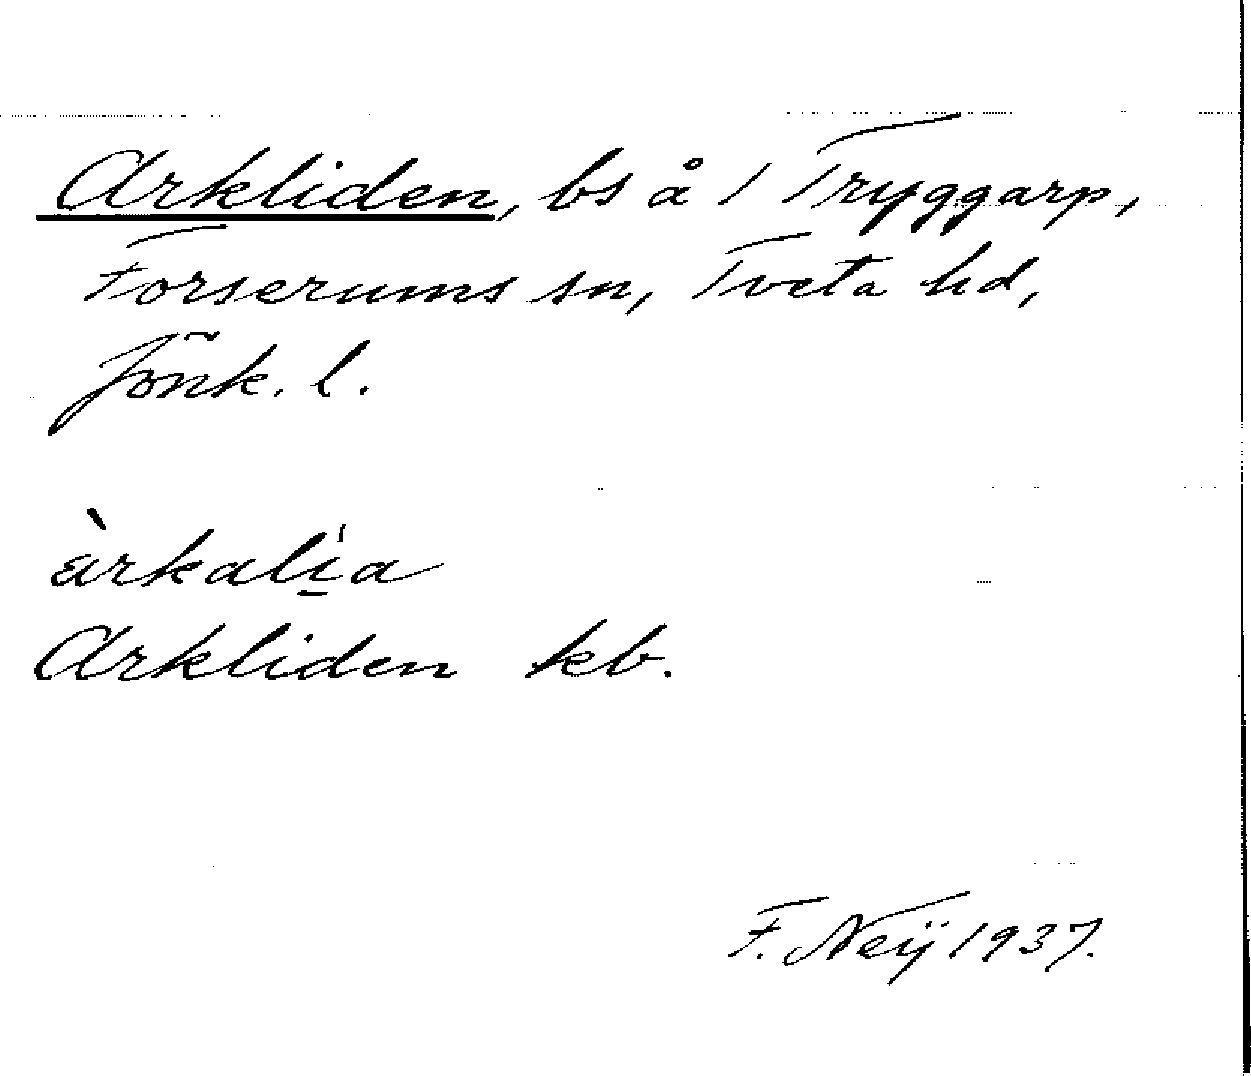 Arkliden, bs å 1 Tryggarp,
Forserums sn, Tveta hd,
Jönk. l.
àrkalı̱́a
Arkliden kb.
F. Neÿ 1937.